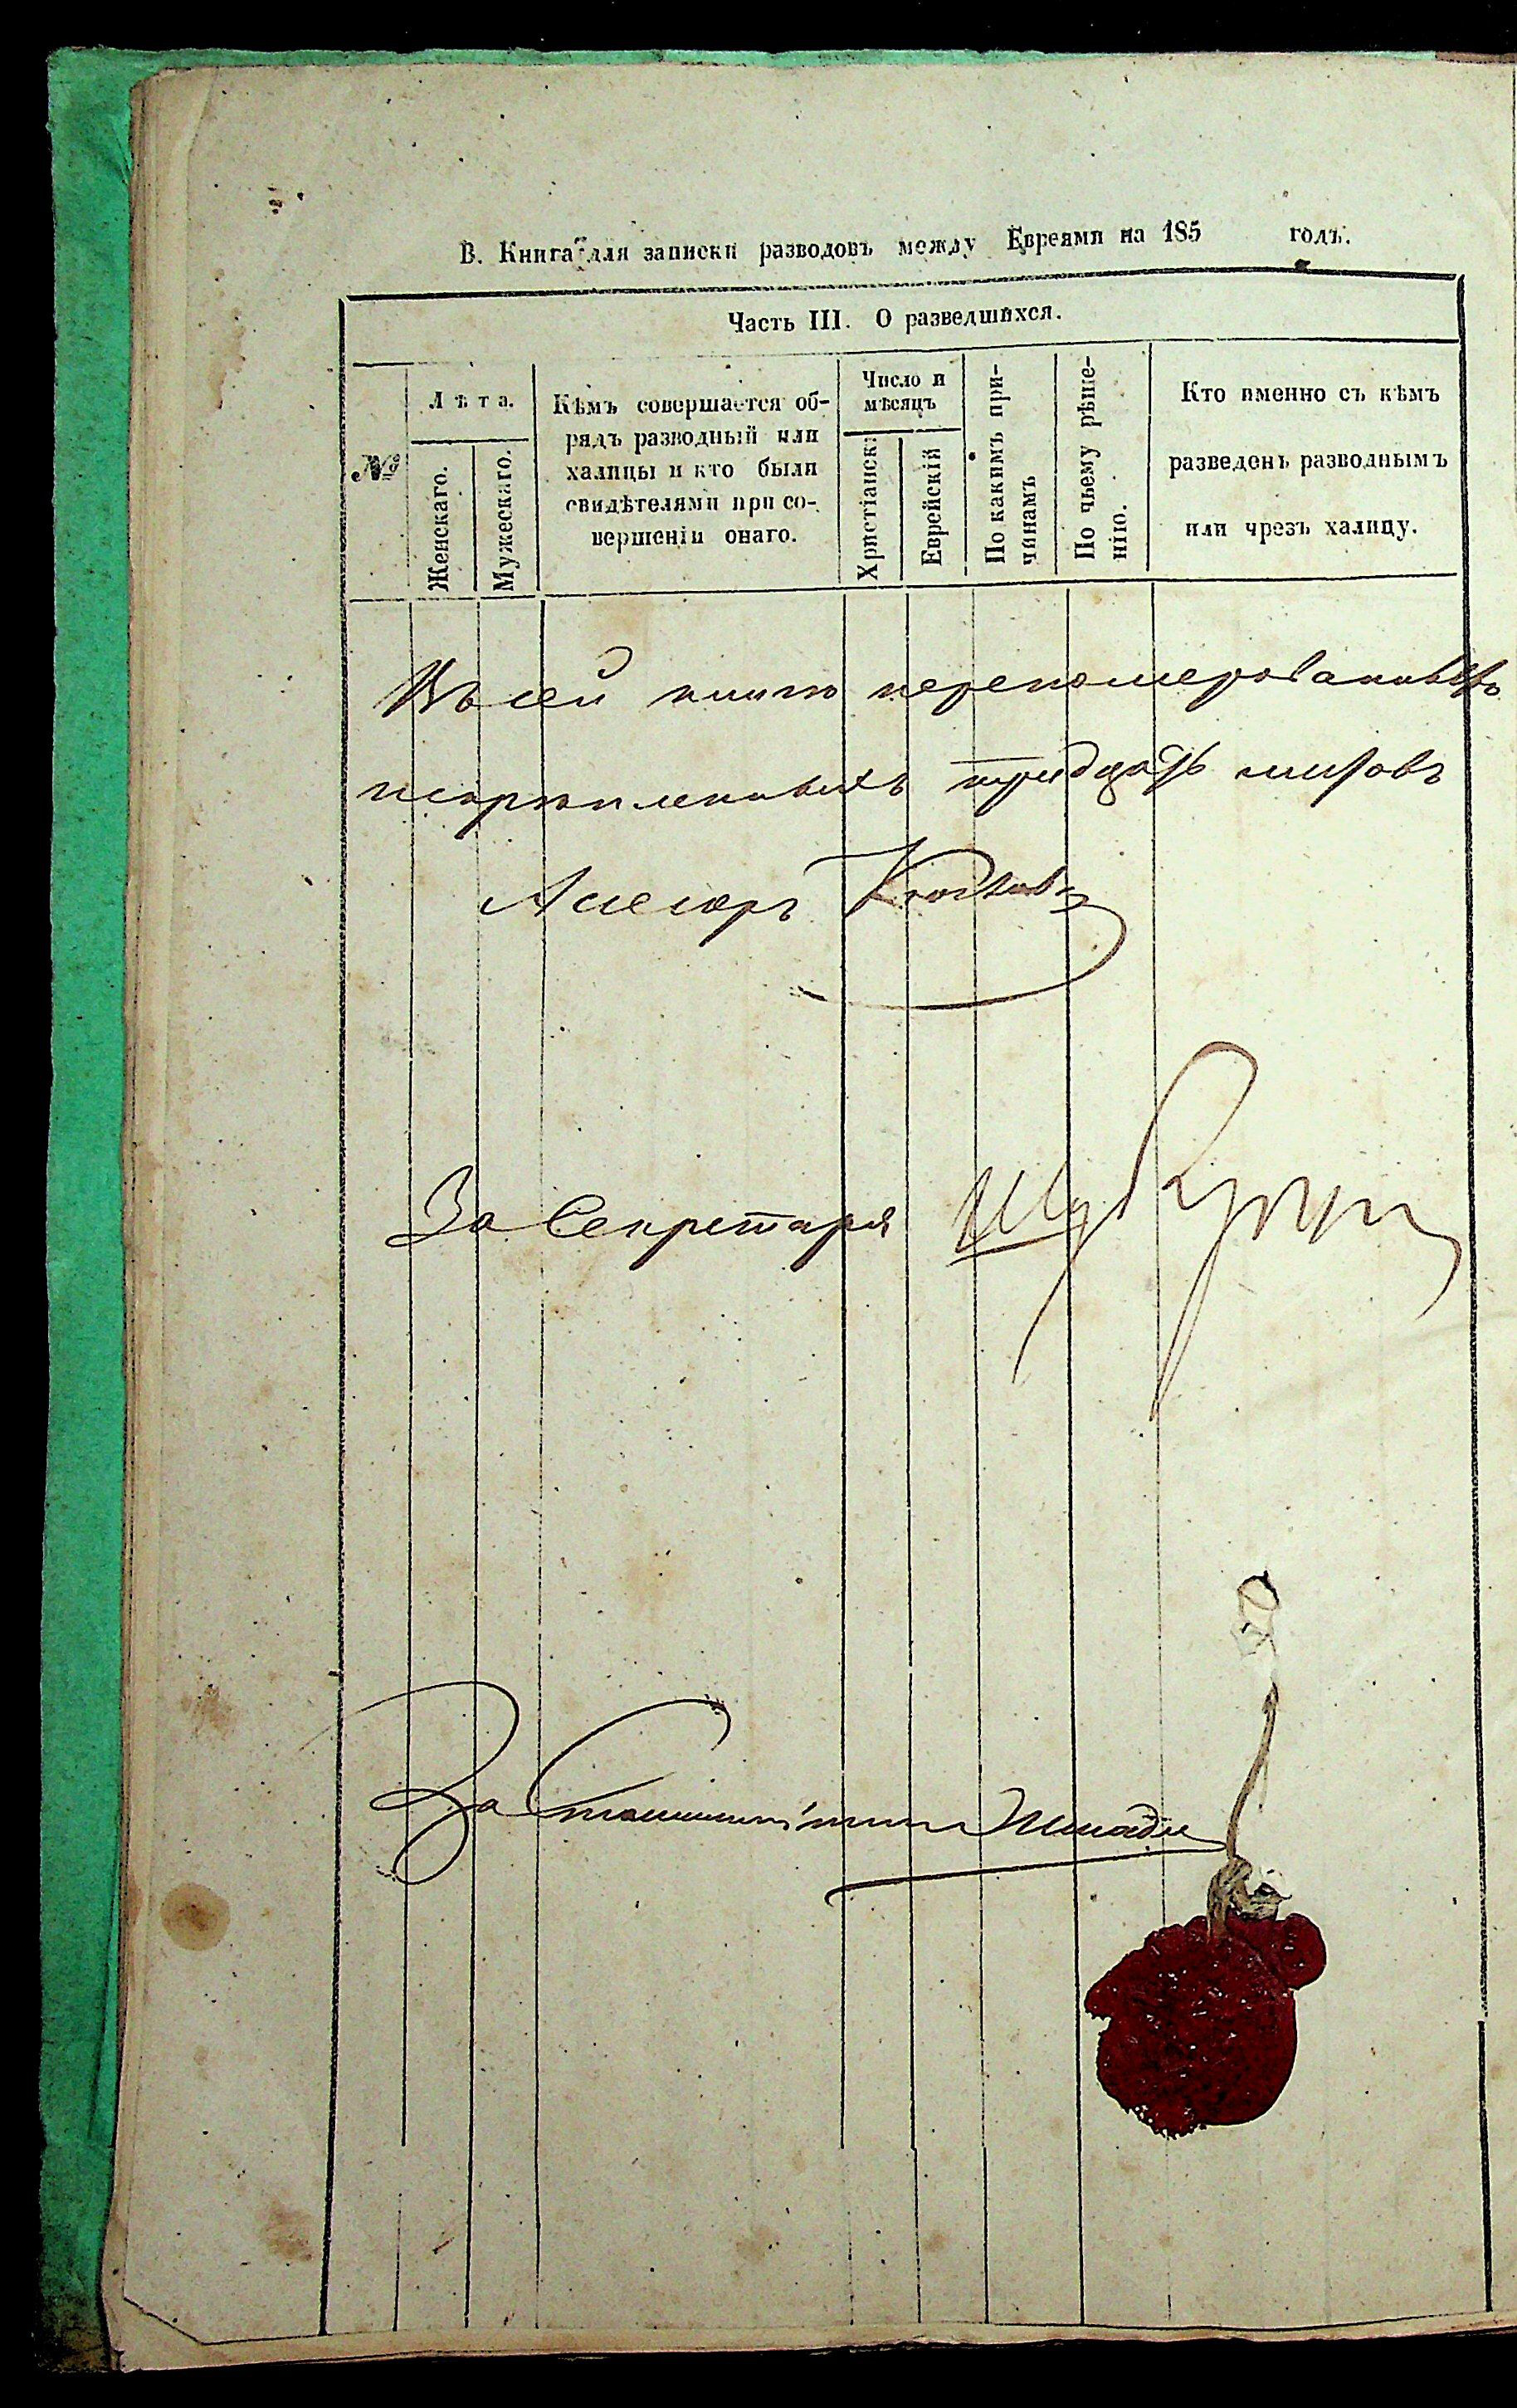 В. Книга для записки разводовъ между Евреями на 185 годъ.
Часть III. О разведшихся.
№
Лѣта.
Женскаго.
Мужескаго.
Кѣмъ совершается об-
рядъ разводный или
халицы и кто были
свидѣтелями при со-
вершеніи онаго.
Число и
мѣсяцъ
Христіанск:
Еврейскій
По какимъ при-
чинамъ
По чьему рѣше-
нію.
Кто именно съ кѣмъ
разведенъ разводнымъ
или чрезъ халицу.
Въ сей книге переномерованныхъ
искрепленныхъ тридцать листовъ
Асесоръ
За Секретаря
За